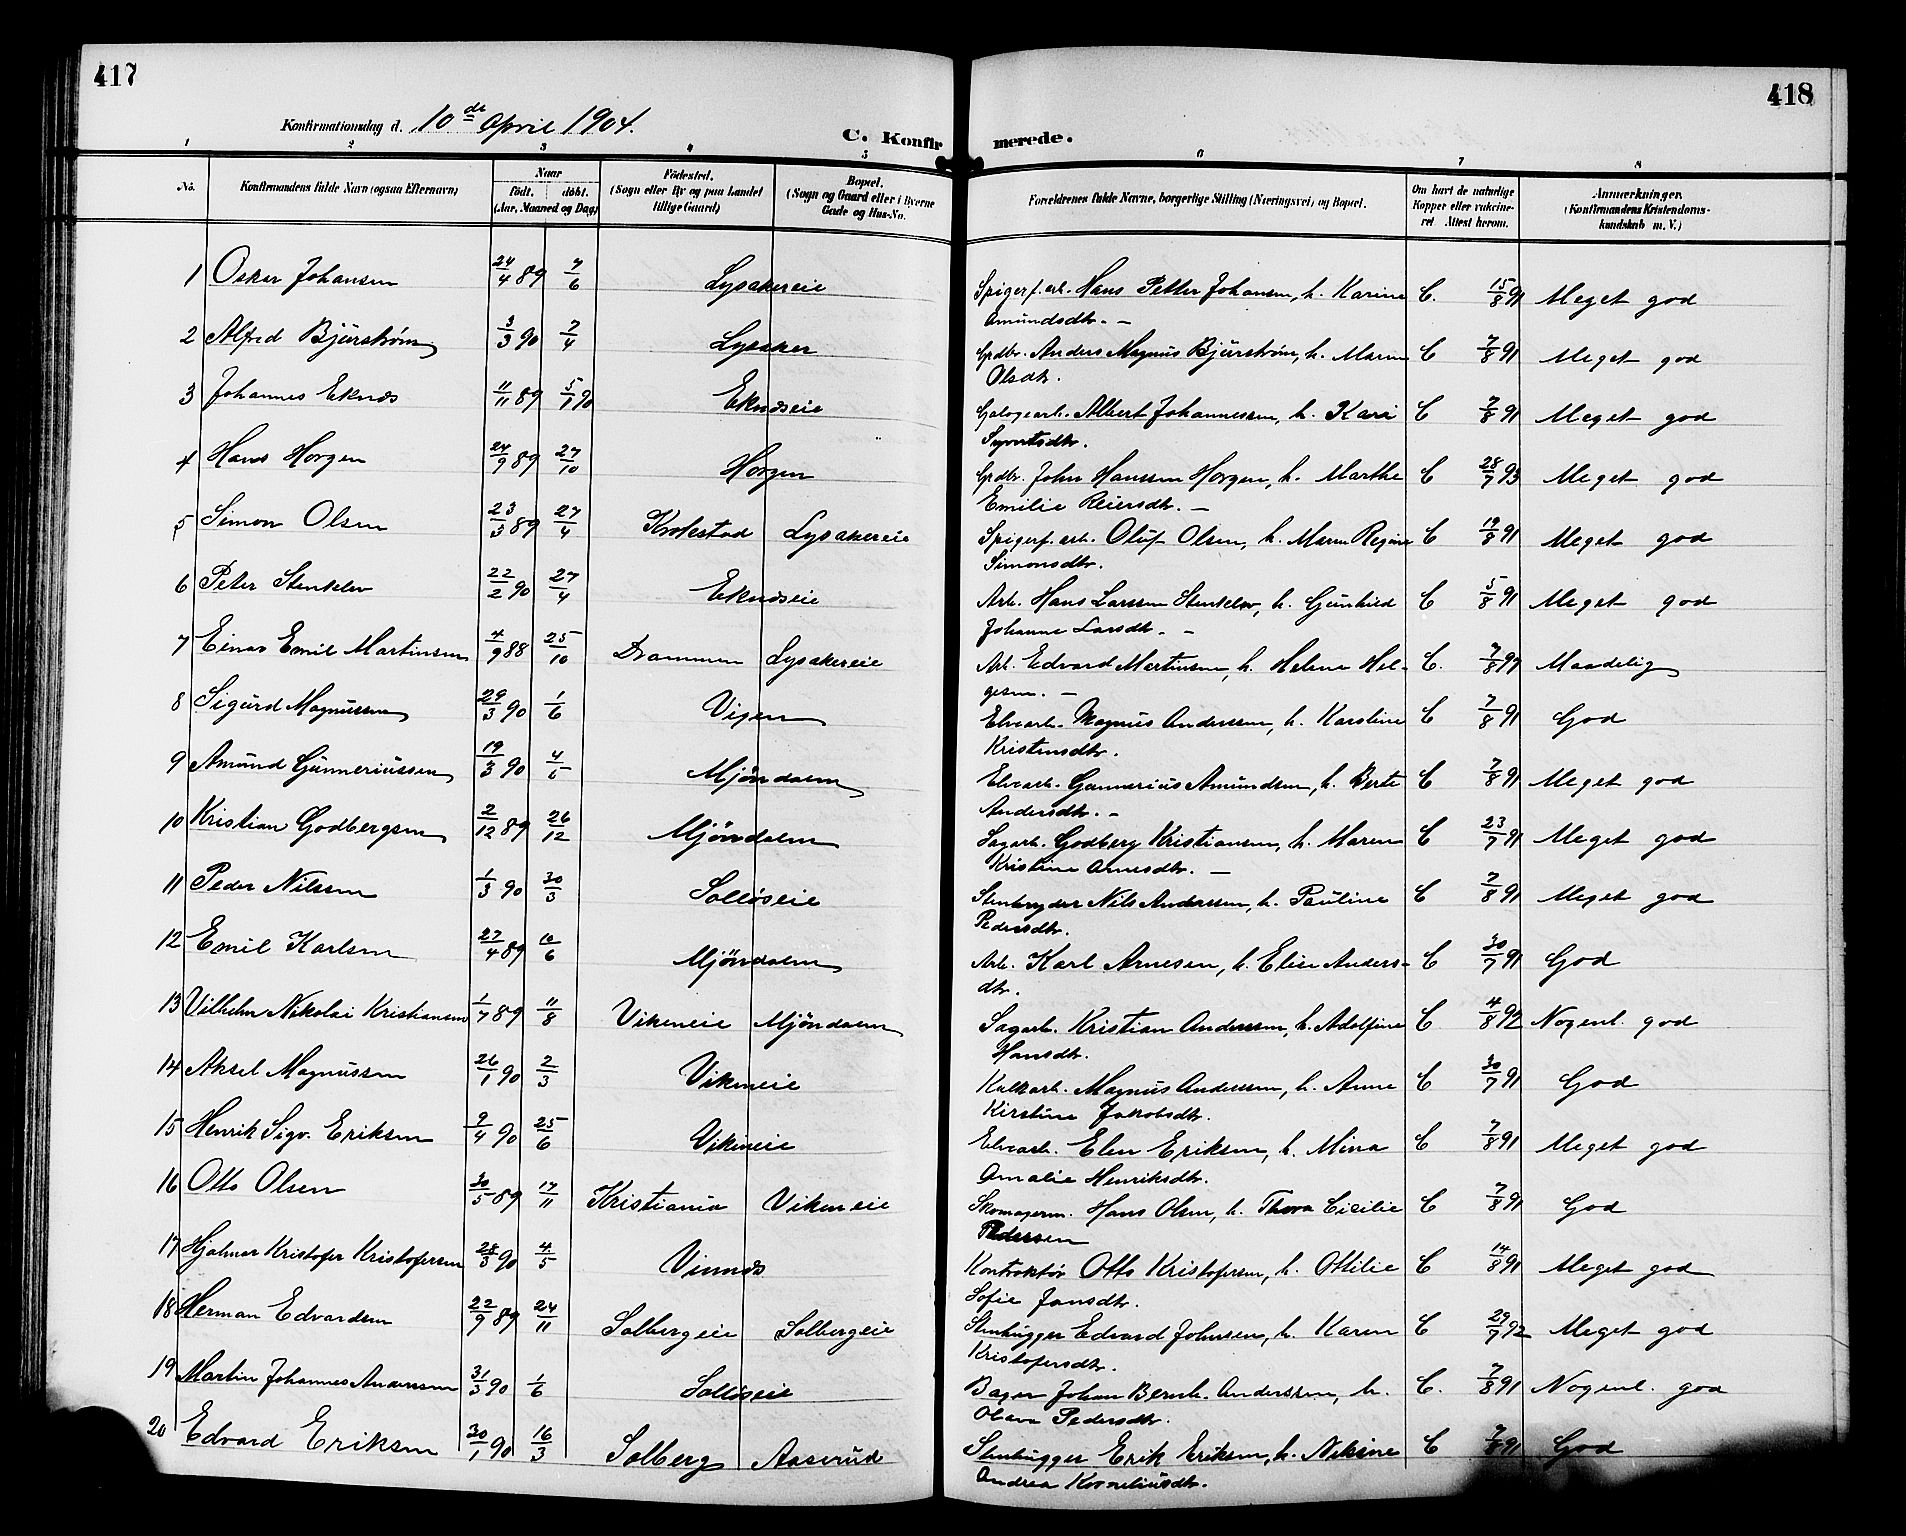 417
418
Konfirmationsdag d. 10de April 1904.
C. Konfirmerede.
1 2 3 4 5 6 7 8
No.
Konfirmandens fulde Navn (ogsaa Efternavn)
Naar født. døbt. (Aar, Maaned og Dag)
Fødested. (Sogn eller By og paa Landet tillige Gaard)
Bopæl. (Sogn og Gaard eller i Byerne Gade og Hus-No.
Forældrenes fulde Navne, borgerlige Stilling (Næringsvei) og Bopæl.
Om havt de naturlige Kopper eller vakcineret Attest herom.
Anmærkninger. (Konfirmandens Kristendomskundskab m. V.)
1 Oskar Johansen 24/4 89 7/6 Lysakereie Spigerf. arb. Hans Petter Johansen, h. Karine C. 15/8 91 Meget god
Amundsdtr. —
2 Alfred Bjurstrøm 3/3 90 7/4 Lysaker Grdbr. Anders Magnus Bjurstrøm, h. Maren C 7/8 91 Meget god
Olsdtr.
3 Johannes Eknæs 11/11 89 5/1 90 Eknæseie Albert Johannessen, h. Kari C 7/8 91 Meget god
Syvertsdtr.
4 Hans Horgen 24/9 89 27/10 Horgen Grdbr. John Hanssen Horgen, h. Marthe C 28/7 93 Meget god
Emilie Reiersdtr. —
5 Simon Olsen 23/3 89 27/4 Krokstad Lysakereie Spigerf. arb. Oluf Olsen, h. Maren Regine C 19/8 91 Meget god
Simonsdtr.
6 Peter Stenklev 22/2 90 27/4 Eknæseie Arb. Hans Larssen Stenklev, h. Gunhild C 5/8 91 Meget god
Johanne Larsdtr. —
7 Einar Emil Martinsen 4/9 88 25/10 Drammen Lysakereie Arb. Edvard Martinsen, h. Helene Hel- C. 7/8 97 Maadelig
gesen. —
8 Sigurd Magnussen 29/3 90 1/6 Vigen Elvearb. Magnus Anderssen, h. Karoline C 7/8 91 God
Kristensdtr.
9 Amund Gunneriussen 19/3 90 4/5 Mjøndalen Elvearb. Gunnerius Amundsen, h. Berte C 7/8 91 Meget god
Andersdtr. —
10 Kristian Godbergsen 2/12 89 26/12 Mjøndalen Sagarb. Godberg Kristiansen, h. Maren C 23/7 91 Meget god
Kristine Arnesdtr. —
11 Peder Nilssen 1/3 90 30/3 Solløseie Stenbryder Nils Anderssen, h. Pauline C 7/8 91 Meget god
Pedersdtr.
12 Emil Karlsen 27/4 89 10/6 Mjøndalen Arb. Karl Arnesen, h. Elise Anders- C 30/7 91 God
dtr.
13 Vilhelm Nikolai Kristiansen 1/7 89 11/8 Vikeneie Mjøndalen Sagarb. Kristian Anderssen, h. Adolfine C 4/8 92 Nogenl. god
Hansdtr.
14 Aksel Magnussen 26/1 90 2/3 Vikeneie Kalkarb. Magnus Anderssen, h. Anne C 30/7 91 God
Kirstine Jakobsdtr.
15 Henrik Sigv. Eriksen 9/4 90 25/6 Vikeneie Elvearb. Elen Eriksen, h. Mina C 7/8 91 Meget god
Amalie Henriksdtr.
16 Otto Olsen 30/5 89 17/11 Kristiania Vikeneie Skomagerm. Hans Olsen, h. Thora Cicilie C 7/8 91 God
Pedersen
17 Hjalmar Kristofer Kristofersen 28/3 90 4/5 Vinnæs Kontraktør Otto Kristofersen, h. Ottilie C 14/8 91 Meget god
Sofie Jansdtr.
18 Herman Edvardsen 22/9 89 24/11 Solbergeie Solbergeie Stenhugger Edvard Johnsen, h. Karen C 29/7 92 Meget god
Kristofersdtr.
19 Martin Johannes Anderssen 31/3 90 1/6 Solløseie Bager Johan Bernh. Anderssen, h. C. 7/8 91 Nogenl. god
Olava Pedersdtr.
20 Edvard Eriksen 30/1 90 16/3 Solberg Aaserud Stenhugger Erik Eriksen, h. Nilsine C 7/8 91 God
Andrea Korneliusdtr.